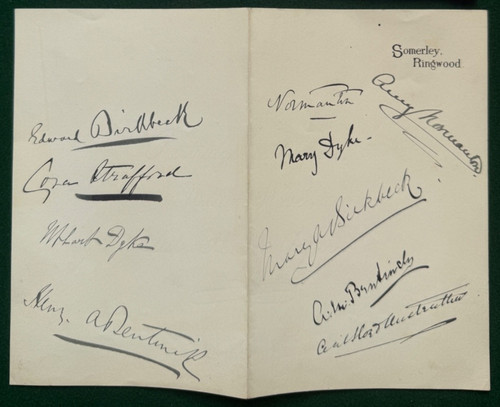 Edward Birkbeck
Cora Strafford
W Hart Dyke
Henry A Bentinck
Somerley,
Ringwood
Normanton
Amy Normanton.
Mary Dyke-
Mary A Birkbeck
Bentinck
Cecil Lloyd Anstruther